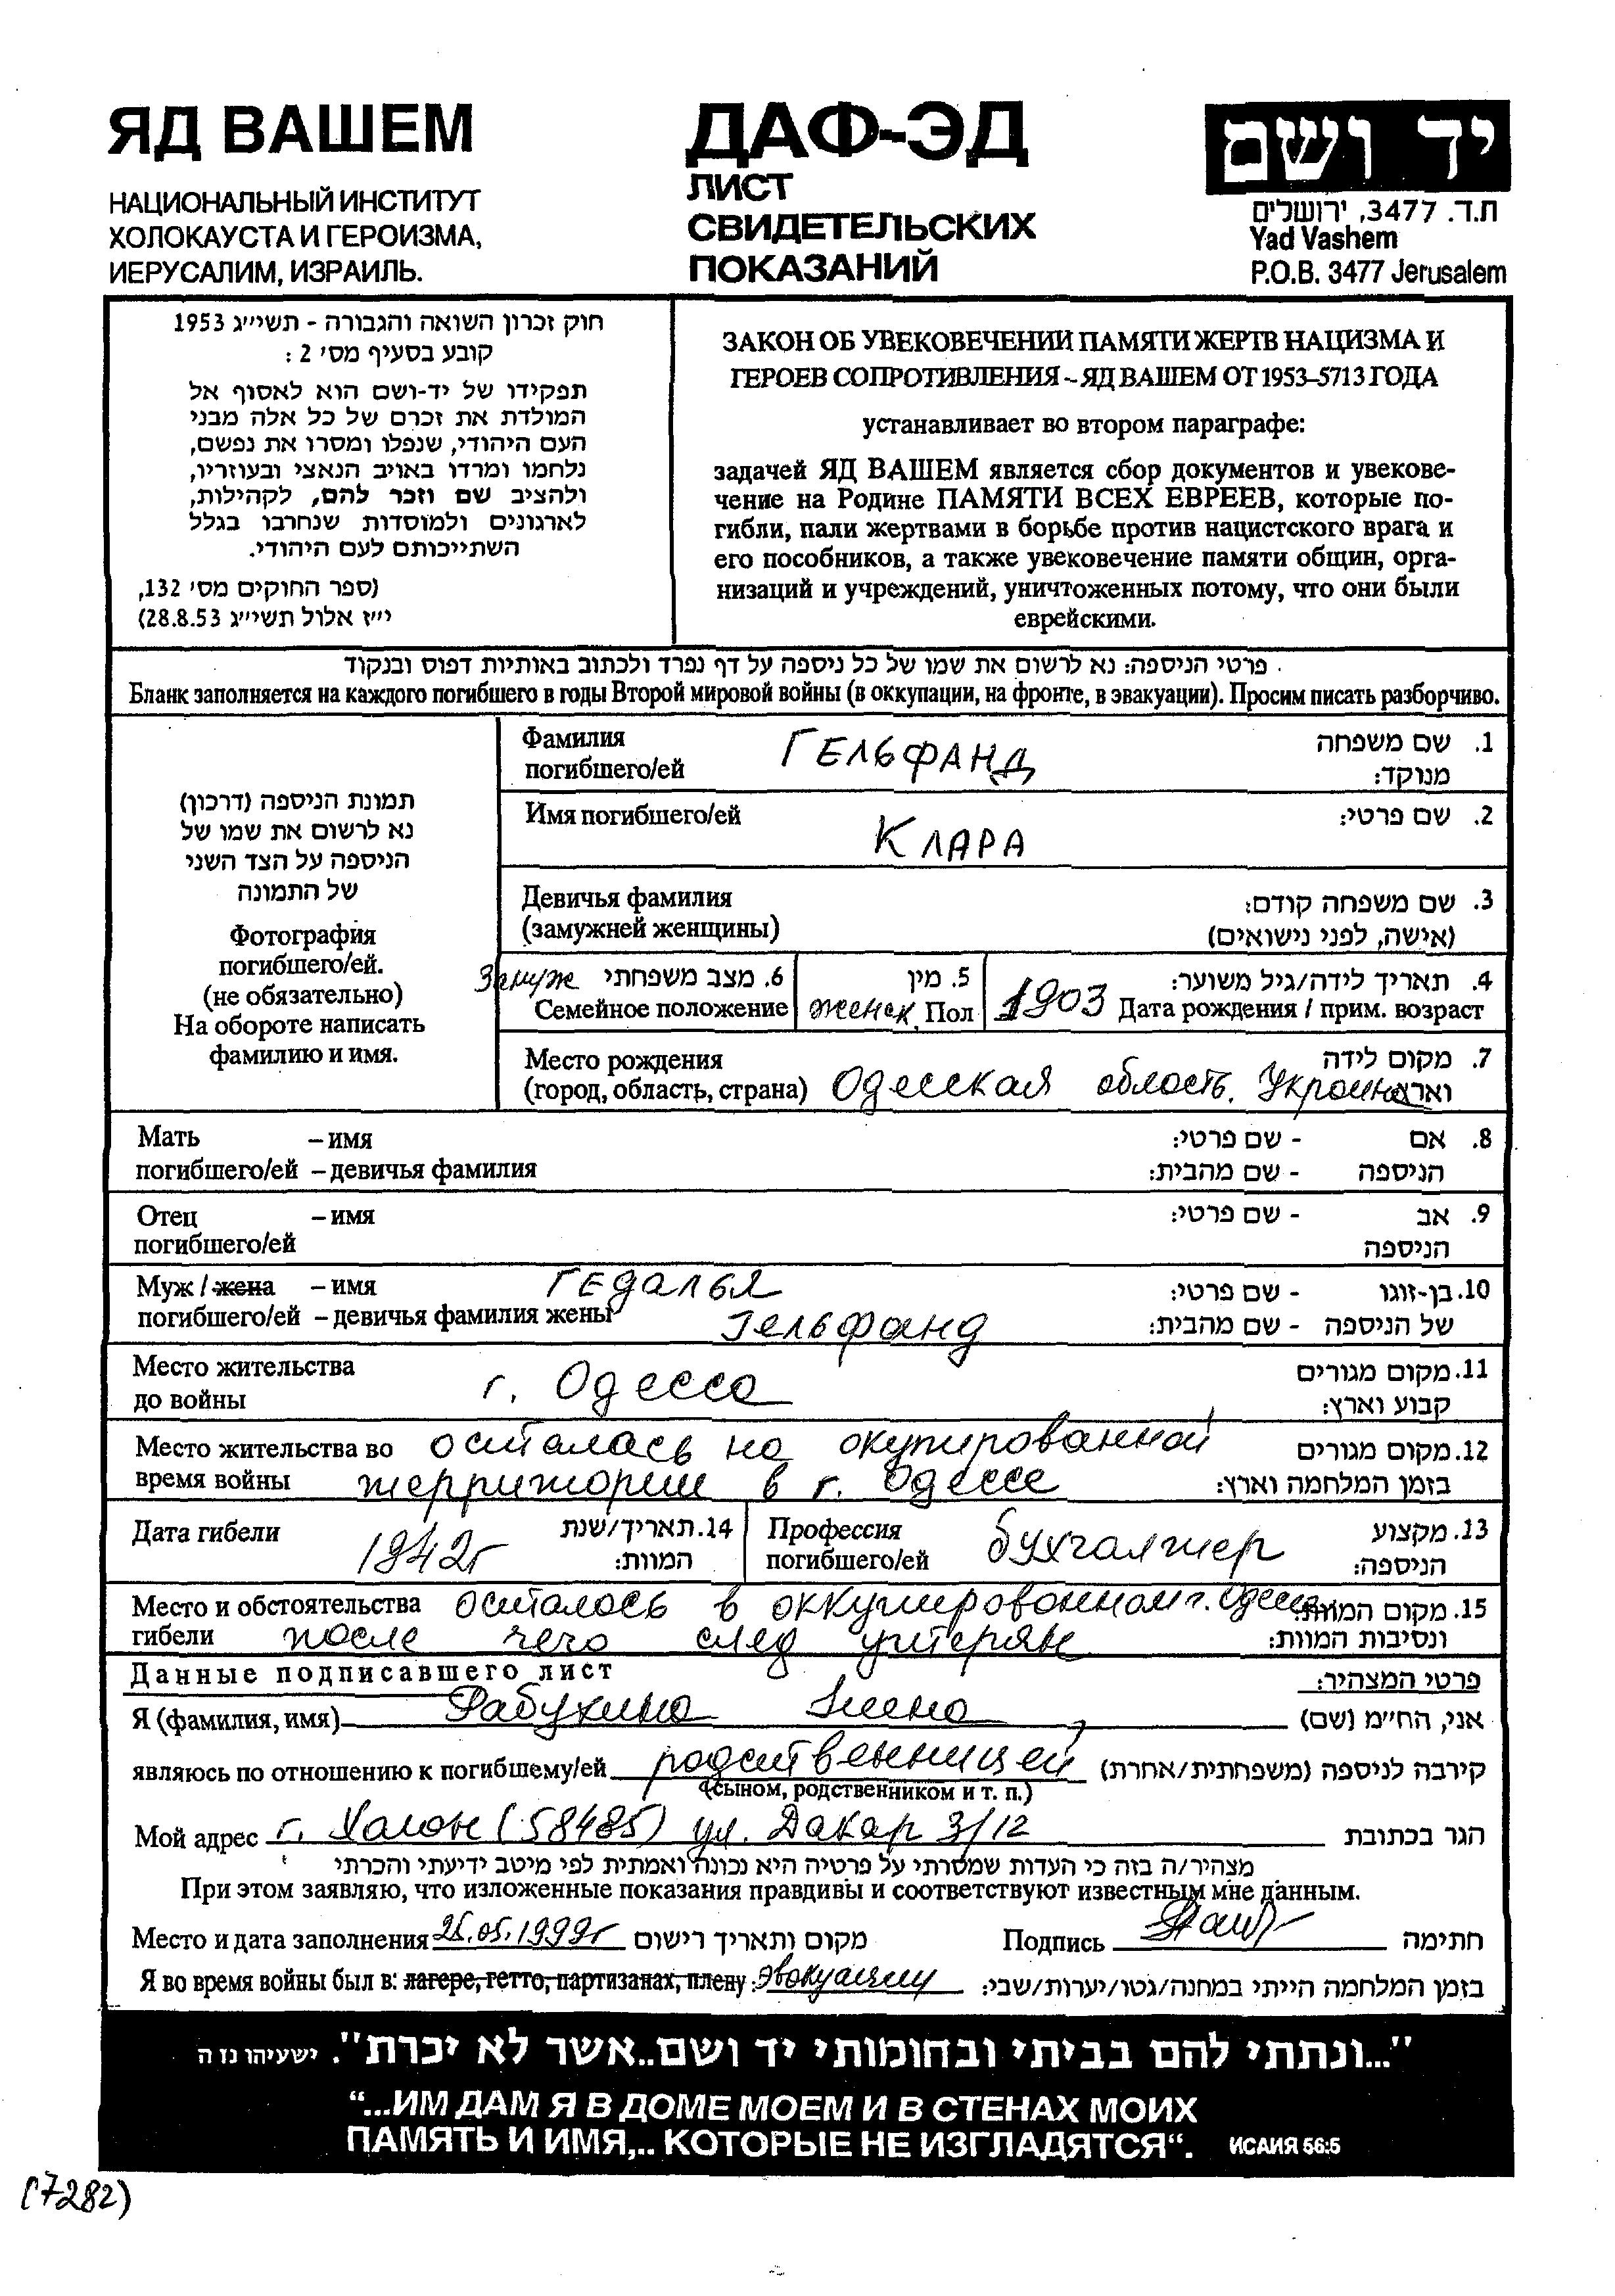 ЯД ВАШЕМ
НАЦИОНАЛЬНЫЙ ИНСТИТУТ
ХОЛОКАУСТА И ГЕРОИЗМА,
ИЕРУСАЛИМ, ИЗРАИЛЬ.
ДАФ-ЭД
ЛИСТ
СВИДЕТЕЛЬСКИХ
ПОКАЗАНИЙ
יד ושם
ת.ד. 3477, ירושלים
Yad Vashem
P.O.B. 3477 Jerusalem
חוק זכרון השואה והגבורה - תשי״ג 1953
קובע בסעיף מס׳ 2 :
תפקידו של יד-ושם הוא לאסוף אל
המולדת את זכרם של כל אלה מבני
העם היהודי, שנפלו ומסרו את נפשם,
נלחמו ומרדו באויב הנאצי ובעוזריו,
ולהציב שם וזכר להם, לקהילות,
לארגונים ולמוסדות שנחרבו בגלל
השתייכותם לעם היהודי.
(ספר החוקים מס׳ 132,
י״ז אלול תשי״ג 28.8.53)
ЗАКОН ОБ УВЕКОВЕЧЕНИИ ПАМЯТИ ЖЕРТВ НАЦИЗМА И
ГЕРОЕВ СОПРОТИВЛЕНИЯ – ЯД ВАШЕМ ОТ 1953–5713 ГОДА
устанавливает во втором параграфе:
задачей ЯД ВАШЕМ является сбор документов и увекове-
чение на Родине ПАМЯТИ ВСЕХ ЕВРЕЕВ, которые по-
гибли, пали жертвами в борьбе против нацистского врага и
его пособников, а также увековечение памяти общин, орга-
низаций и учреждений, уничтоженных потому, что они были
еврейскими.
פרטי הניספה: נא לרשום את שמו של כל ניספה על דף נפרד ולכתוב באותיות דפוס ובנקוד
Бланк заполняется на каждого погибшего в годы Второй мировой войны (в оккупации, на фронте, в эвакуации). Просим писать разборчиво.
תמונת הניספה (דרכון)
נא לרשום את שמו של
הניספה על הצד השני
של התמונה
Фотография
погибшего/ей.
(не обязательно)
На обороте написать
фамилию и имя.
Фамилия ГЕЛЬФАНД 1. שם משפחה
погибшего/ей מנוקד:
Имя погибшего/ей КЛАРА 2. שם פרטי:
Девичья фамилия 3. שם משפחה קודם:
(замужней женщины) (אישה, לפני נישואים)
Замуж 6. מצב משפחתי 5. מין 4. תאריך לידה/גיל משוער:
Семейное положение женск. Пол 1903 Дата рождения / прим. возраст
Место рождения 7. מקום לידה
(город, область, страна) Одесская область. Украина וארץ
Мать – имя 8. אם - שם פרטי:
погибшего/ей – девичья фамилия הניספה - שם מהבית:
Отец – имя 9. אב - שם פרטי:
погибшего/ей הניספה
Муж / жена – имя ГЕДАЛЬЯ 10. בן-זוגו - שם פרטי:
погибшего/ей – девичья фамилия жены Гельфанд של הניספה - שם מהבית:
Место жительства 11. מקום מגורים
до войны г. Одесса קבוע וארץ:
Место жительства во осталась на окупированной 12. מקום מגורים
время войны территории в г. Одессе בזמן המלחמה וארץ:
Дата гибели 1942г 14. תאריך/שנת Профессия бухгалтер 13. מקצוע
המוות: погибшего/ей הניספה:
Место и обстоятельства осталась в оккупированном г. Одесса 15. מקום המוות
гибели после чего след утерян ונסיבות המוות:
Данные подписавшего лист פרטי המצהיר:
Я (фамилия, имя) אני, הח״מ (שם)
являюсь по отношению к погибшему/ей родственницей קירבה לניספה (משפחתית/אחרת)
(сыном, родственником и т. п.)
Мой адрес г. Холон (58485) ул. Дакар 3/12 הגר בכתובת
מצהיר/ה בזה כי העדות שמסרתי על פרטיה היא נכונה ואמתית לפי מיטב ידיעתי והכרתי
При этом заявляю, что изложенные показания правдивы и соответствуют известным мне данным.
Место и дата заполнения 25.05.1999г מקום ותאריך רישום Подпись חתימה
Я во время войны был в: лагере, гетто, партизанах, плену : эвакуации בזמן המלחמה הייתי במחנה/גטו/יערות/שבי:
"...ונתתי להם בביתי ובחומותי יד ושם..אשר לא יכרת". ישעיהו נז ה
“...ИМ ДАМ Я В ДОМЕ МОЕМ И В СТЕНАХ МОИХ
ПАМЯТЬ И ИМЯ,.. КОТОРЫЕ НЕ ИЗГЛАДЯТСЯ“. ИСАИЯ 56:5
(7282)